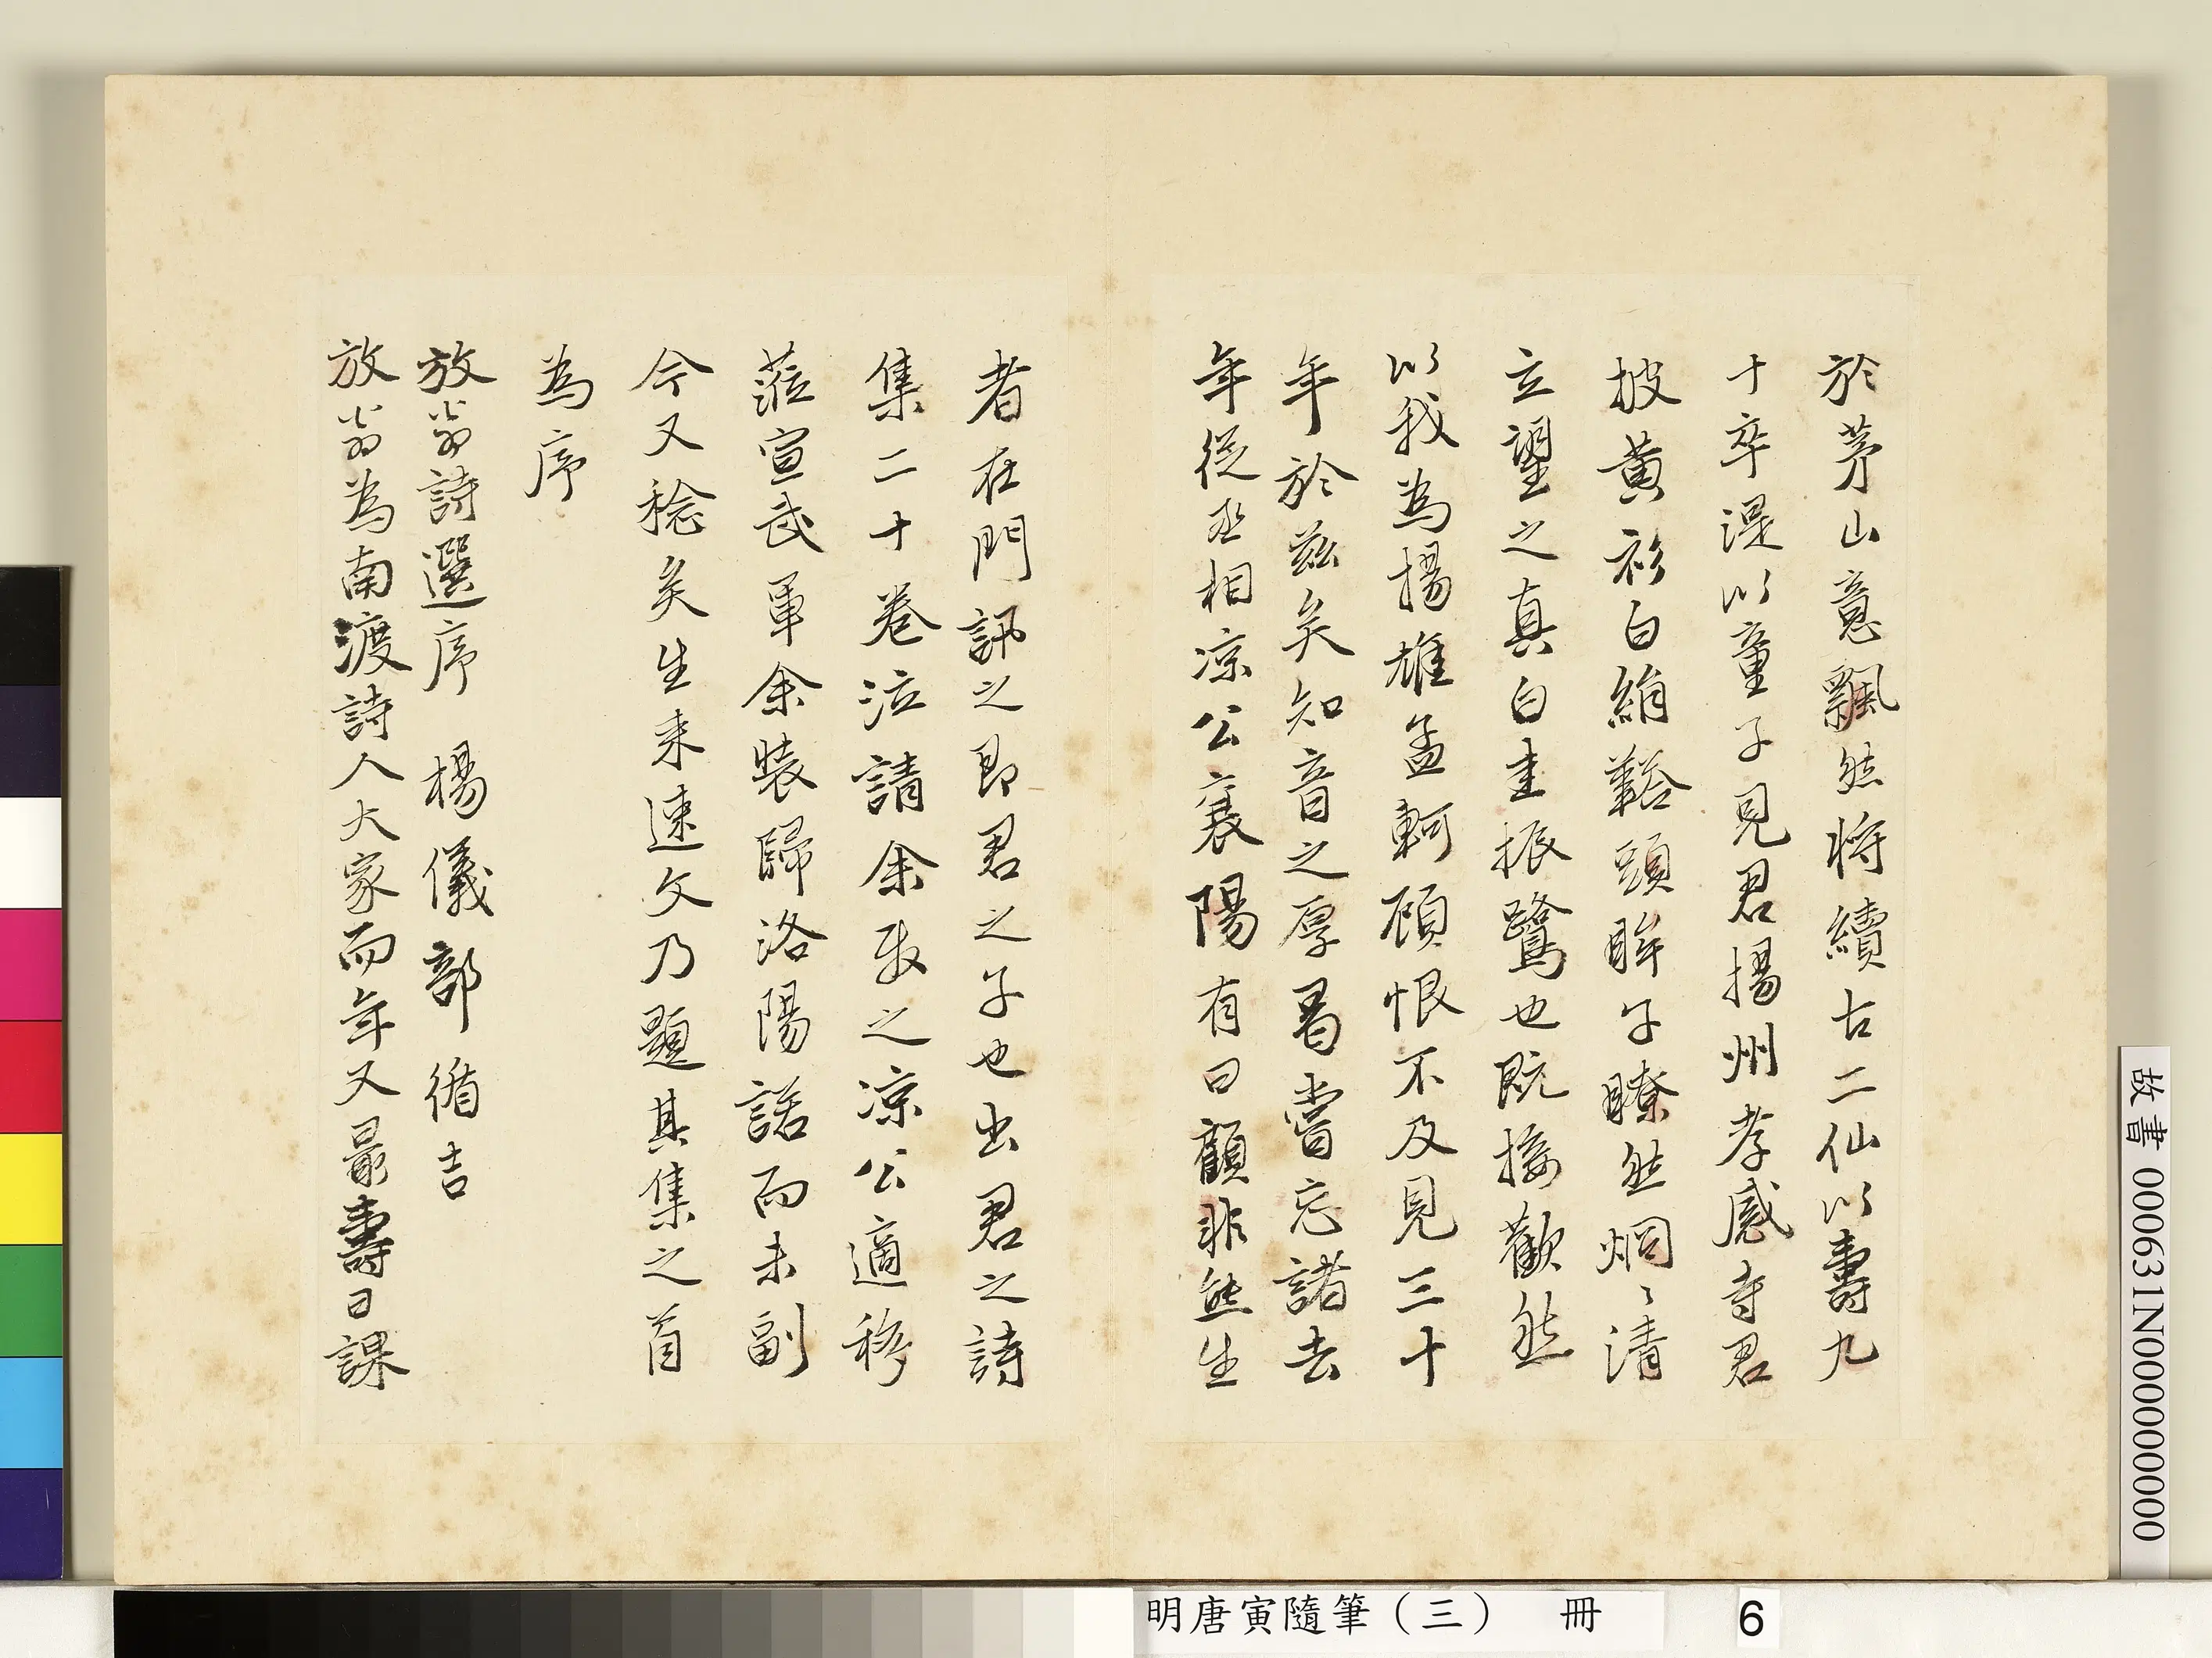 於茅山意飄然將續古二仙以壽九
十卒湜以童子見君揚州孝感寺君
披黃衫白絹鞳頭眸子瞭然炯〻清
立望之真白圭振鷺也既接歡然
以我為揚雄孟軻顧恨不及見三十
年於茲矣知音之厚曷嘗忘諸去
年從丞相凉公襄陽有曰顧非熊生
者在門訊之即君之子也出君之詩
集二十卷泣請余敘之凉公適移
蒞宣武軍余裝歸洛陽諾而未副
今又稔矣生来速文乃題其集之首
為序
放翁詩選序 楊儀部循吉
放翁為南渡詩人大家而年又最壽日課
故書 000631N000000000
明唐寅隨筆（三） 冊 6